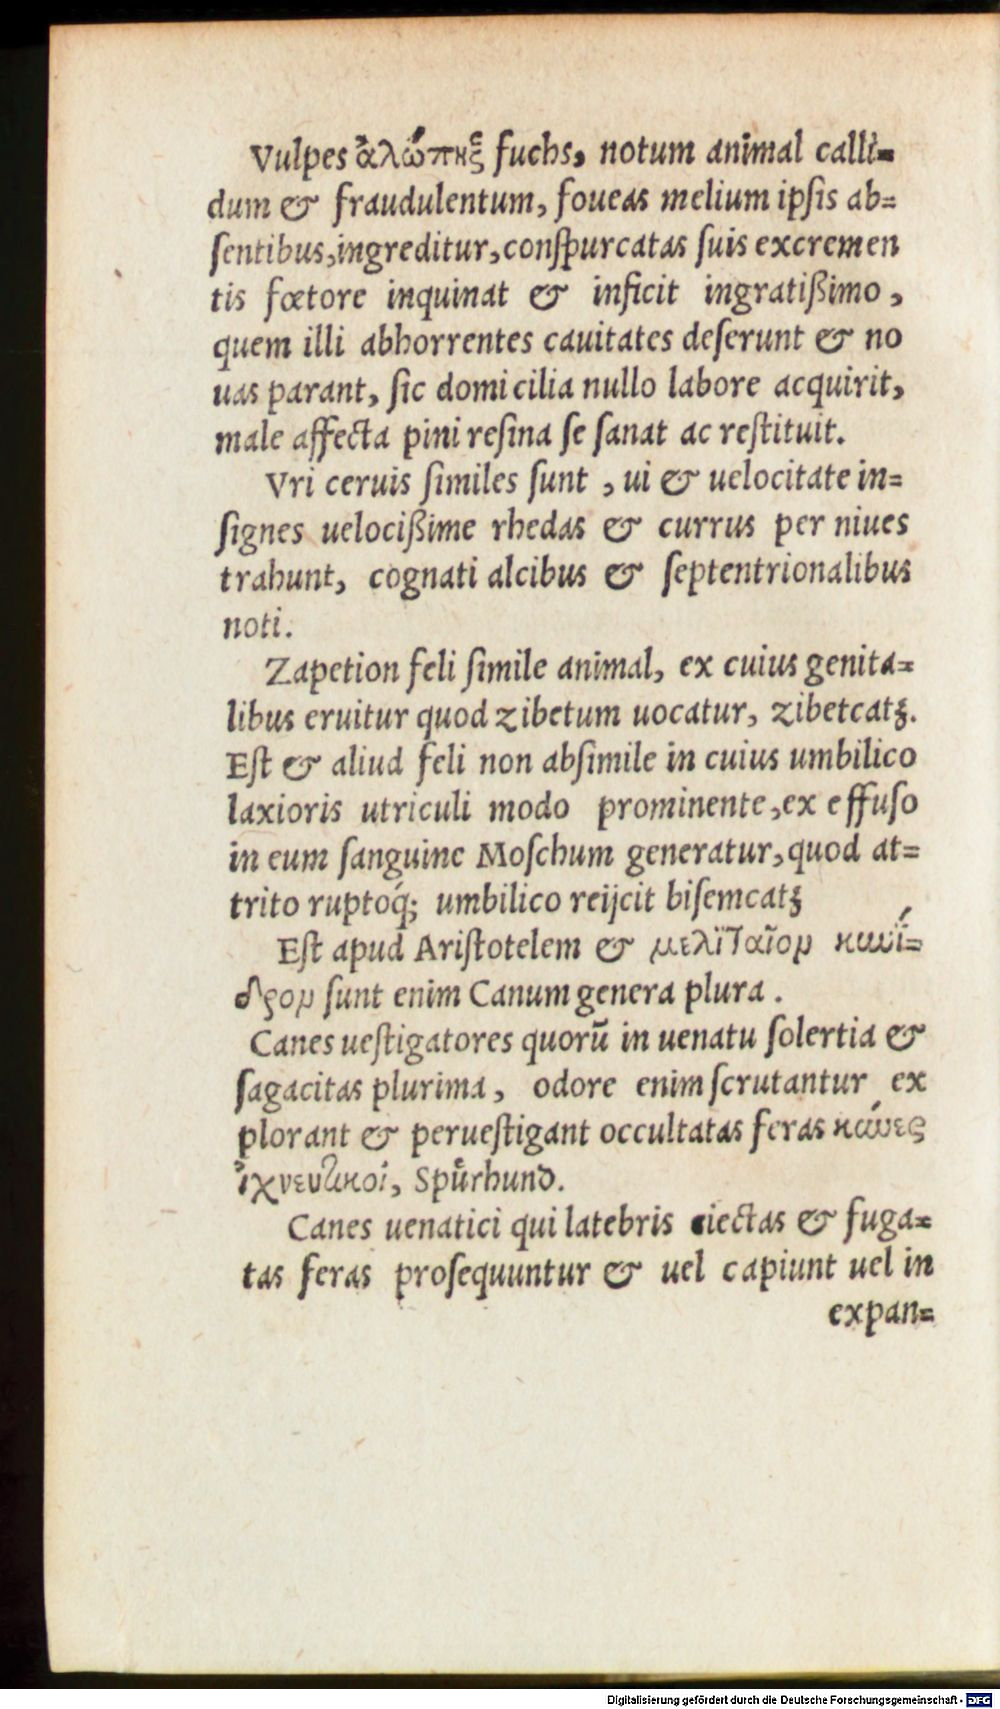 Vulpes ἀλώπηξ fuchs, notum animal calli=
dum & fraudulentum, foueas melium ipſis ab=
ſentibus, ingreditur, conſpurcatas ſuis excremen
tis fœtore inquinat & inficit ingratißimo,
quem illi abhorrentes cauitates deſerunt & no
uas parant, ſic domicilia nullo labore acquirit,
male affecta pini reſina ſe ſanat ac reſtituit.
Vri ceruis ſimiles ſunt, ui & uelocitate in=
ſignes uelocißime rhedas & currus per niues
trahunt, cognati alcibus & ſeptentrionalibus
noti.
Zapetion feli ſimile animal, ex cuius genita=
libus eruitur quod zibetum uocatur, zibetcatz.
Eſt & aliud feli non abſimile in cuius umbilico
laxioris utriculi modo prominente, ex effuſo
in eum ſanguine Moſchum generatur, quod at=
trito ruptoq́; umbilico reijcit biſemcatz
Eſt apud Ariſtotelem & μελιταῖον κυνί=
διον ſunt enim Canum genera plura.
Canes ueſtigatores quorū in uenatu ſolertia &
ſagacitas plurima, odore enim ſcrutantur ex
plorant & perueſtigant occultatas feras κύνες
ἰχνευτικοί, Spuͤrhund.
Canes uenatici qui latebris eiectas & fuga=
tas feras proſequuntur & uel capiunt uel in
expan=
Digitalisierung gefördert durch die Deutsche Forschungsgemeinschaft - DFG